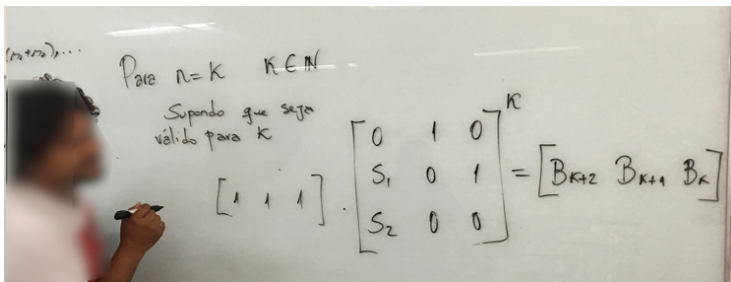 Para n=K K∈ℕ
Supondo que seja
válido para K
[1 1 1] · [0 1 0
S₁ 0 1
S₂ 0 0]ᴷ = [B_{K+2} B_{K+1} B_K]